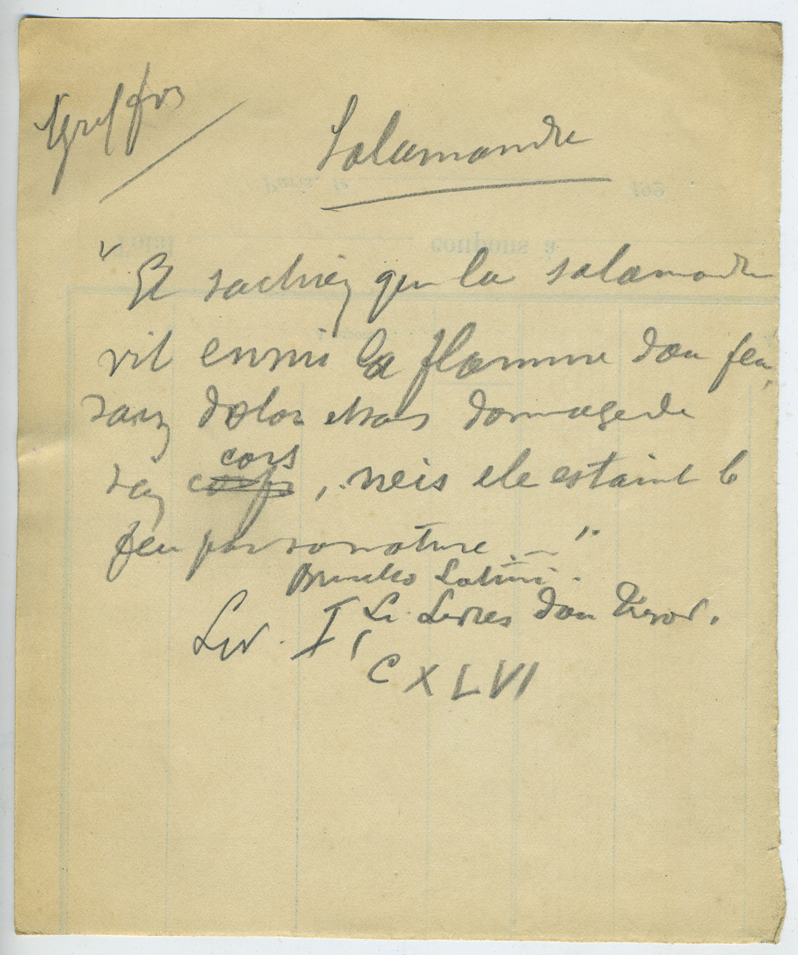 Salamandre
" Et sachiez que la salamandre
vit enmi la flamme dou feu,
sanz dolor et sans domage de
son corps cors, neis ele estaint le
feu par sa nature. — "
Brunetto Latini.
Li Livres dou Tresor.
Liv. I,
CXLVI